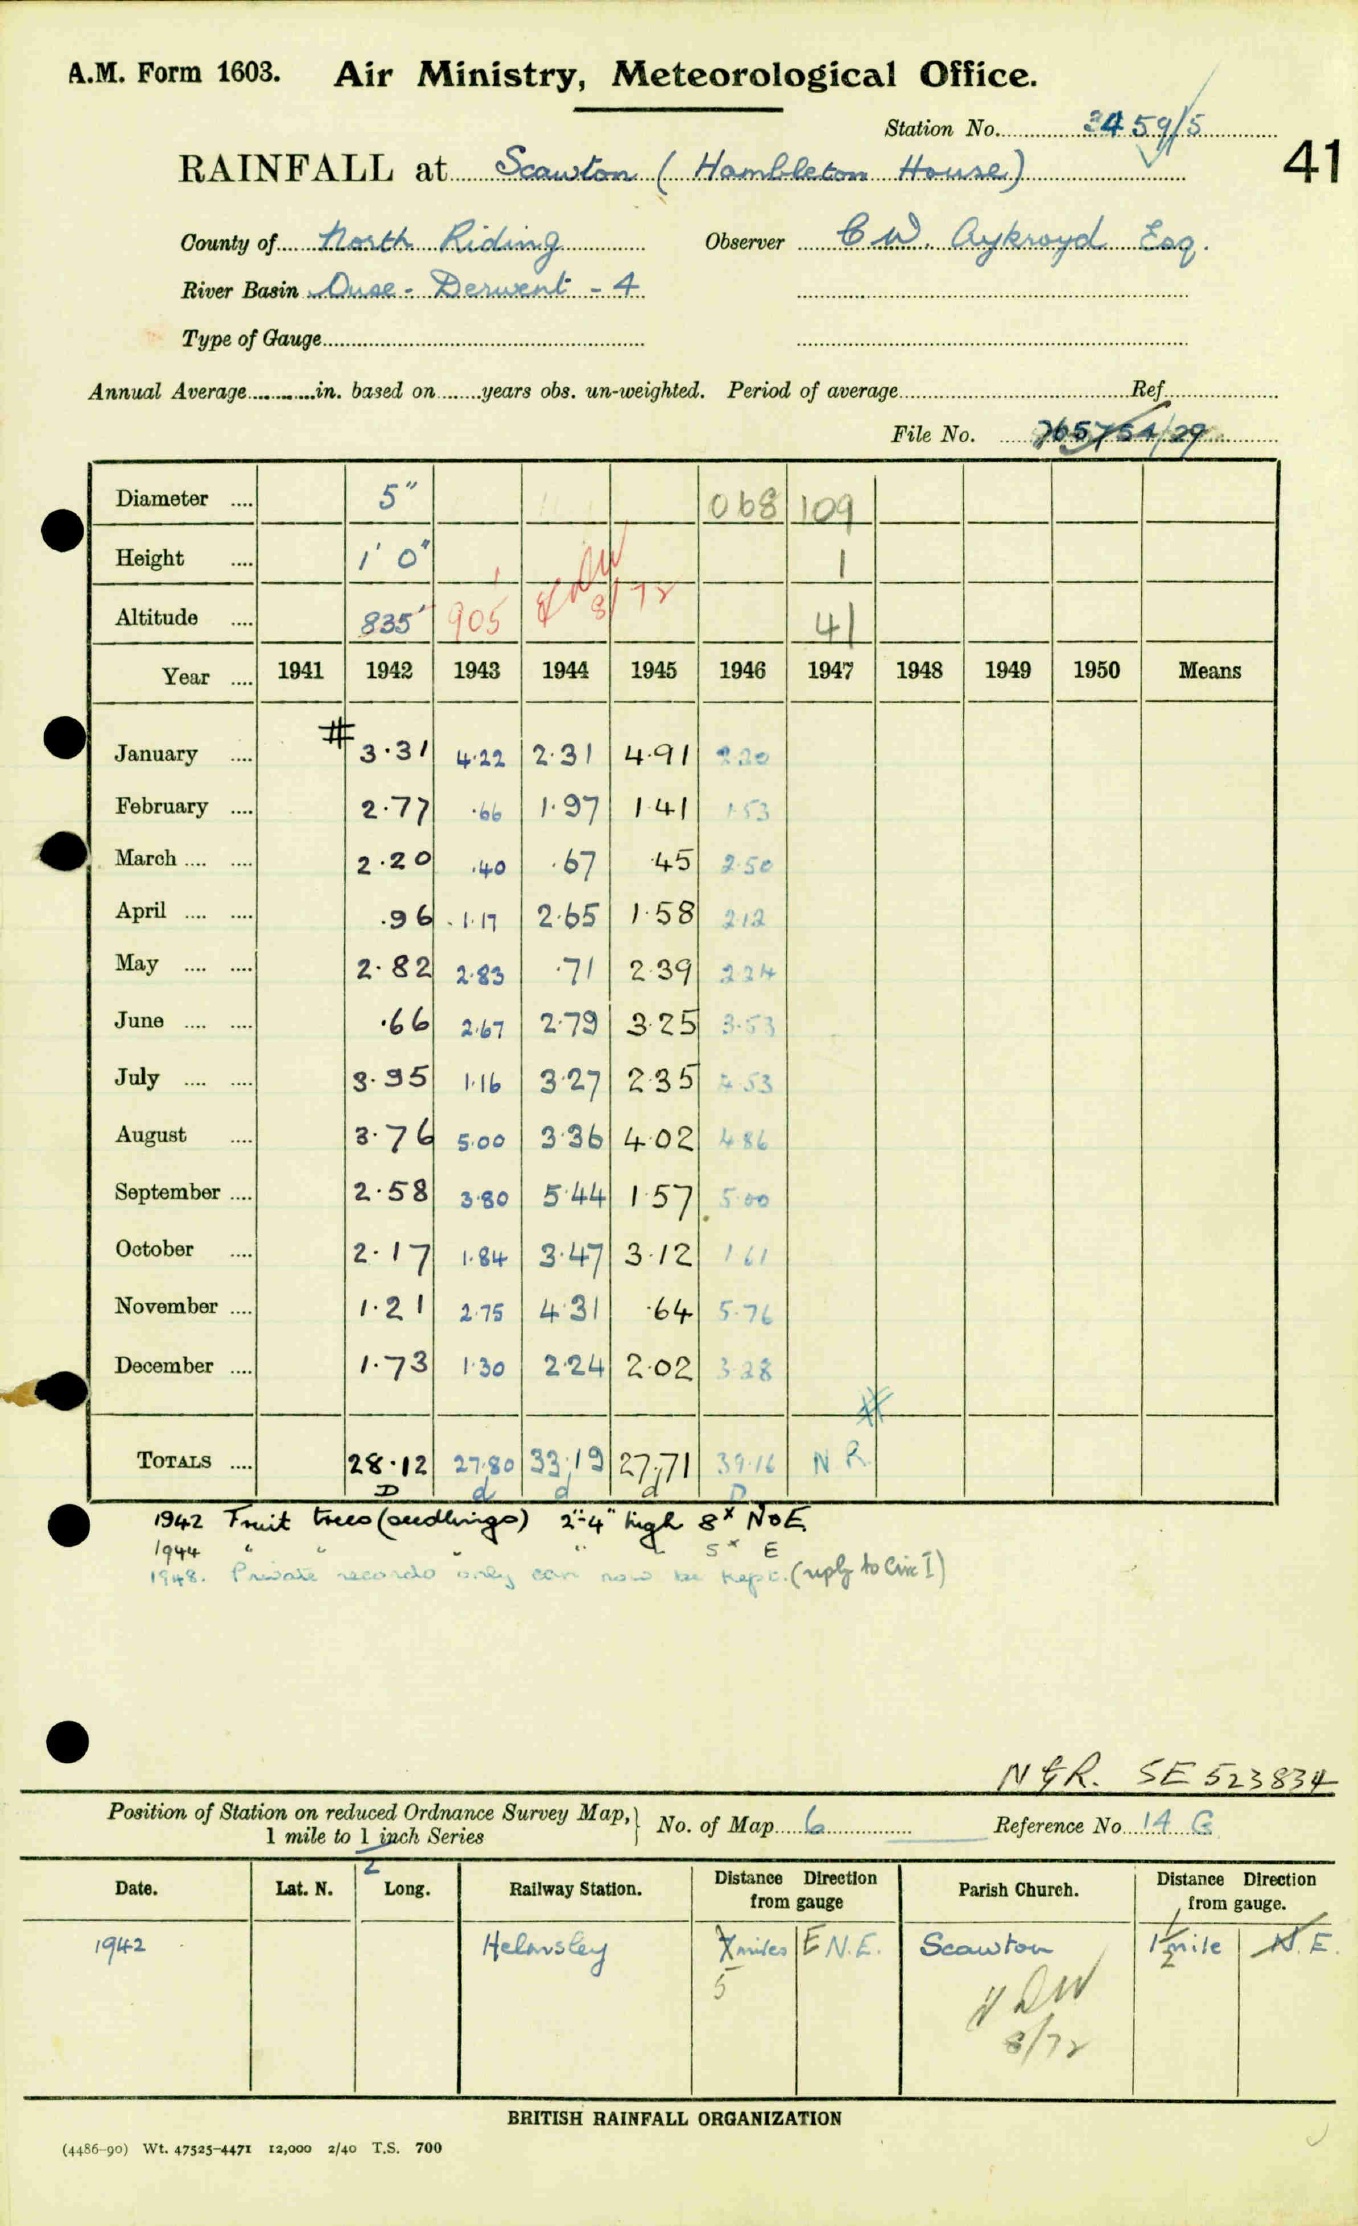 A.M. Form 1603. Air Ministry, Meteorological Office.
Station No. 3459/5
41
RAINFALL at Scawton (Hambleton House)
County of North Riding Observer C W. Aykroyd Esq.
River Basin Ouse - Derwent - 4
Type of Gauge
Annual Average in. based on years obs. un-weighted. Period of average Ref
File No. 765754/29
Diameter 5" 068 109
Height 1' 0" 1
Altitude 835' 905' 8/72 41
Year 1941 1942 1943 1944 1945 1946 1947 1948 1949 1950 Means
January # 3.31 4.22 2.31 4.91 2.20
February 2.77 .66 1.97 1.41 1.53
March 2.20 .40 .67 .45 2.50
April .96 1.17 2.65 1.58 2.12
May 2.82 2.83 .71 2.39 2.24
June .66 2.67 2.79 3.25 3.53
July 3.95 1.16 3.27 2.35 4.53
August 3.76 5.00 3.36 4.02 4.86
September 2.58 3.80 5.44 1.57 5.00
October 2.17 1.84 3.47 3.12 1.61
November 1.21 2.75 4.31 .64 5.76
December 1.73 1.30 2.24 2.02 3.28
#
TOTALS 28.12 27.80 33.19 27.71 39.16 N R.
D d d d D
1942 Fruit trees (seedlings) 2"-4" high 8x N o E
1944 " " " " " 5x E
1948. Private records only can now be kept. (reply to Circ I)
NGR. SE 523834
Position of Station on reduced Ordnance Survey Map, No. of Map 6 Reference No 14 G
1 mile to 1 inch Series
2
Date. Lat. N. Long. Railway Station. Distance Direction from gauge Parish Church. Distance Direction from gauge.
1942 Helmsley 7 miles E N.E. Scawton 1 1/2 mile N. E.
5
8/72
BRITISH RAINFALL ORGANIZATION
(4486-90) Wt. 47525-4471 12,000 2/40 T.S. 700